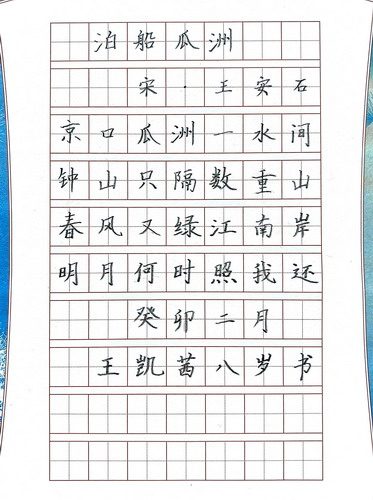 泊船瓜洲
宋·王安石
京口瓜洲一水间
钟山只隔数重山
春风又绿江南岸
明月何时照我还
癸卯二月
王凯茜八岁书